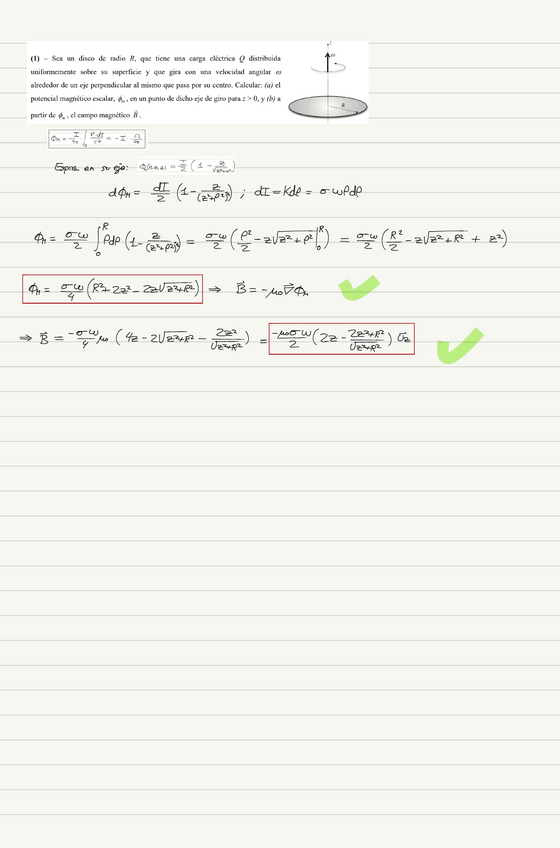 (1) – Sea un disco de radio R, que tiene una carga eléctrica Q distribuida
uniformemente sobre su superficie y que gira con una velocidad angular ω
alrededor de un eje perpendicular al mismo que pasa por su centro. Calcular: (a) el
potencial magnético escalar, ϕm, en un punto de dicho eje de giro para z > 0, y (b) a
partir de ϕm, el campo magnético B⃗.
z
ω
R
Espira en su eje: Φm(0,0,z) = I/2 (1 - z/√(z²+R²))
dΦm = dI/2 (1 - z/(z²+ρ²)^½) ; dI = Kdρ = σωρdρ
Φm = σω/2 ∫₀ᴿ ρdρ (1 - z/(z²+ρ²)^½) = σω/2 (ρ²/2 - z√(z²+ρ²) |₀ᴿ) = σω/2 (R²/2 - z√(z²+R²) + z²)
Φm = σω/4 (R²+2z²-2z√(z²+R²)) ⇒ B⃗ = -μ₀∇⃗Φm
⇒ B⃗ = -σω/4 μ₀ (4z - 2√(z²+R²) - 2z²/√(z²+R²)) = -μ₀σω/2 (2z - 2z²+R²/√(z²+R²)) U⃗z